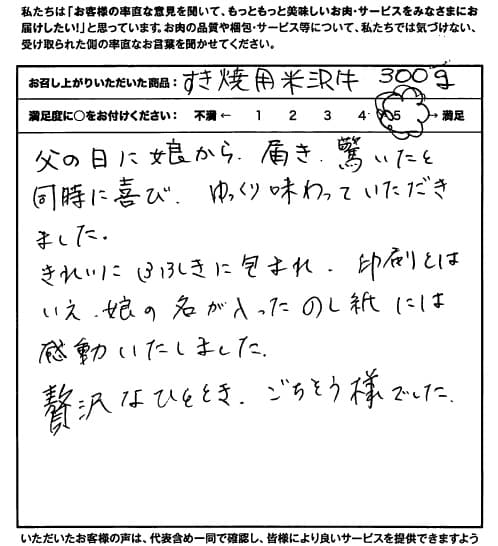 私たちは「お客様の率直な意見を聞いて、もっともっと美味しいお肉・サービスをみなさまにお
届けしたい！」と思っています。お肉の品質や梱包・サービス等について、私たちでは気づけない、
受け取られた側の率直なお言葉を聞かせてください。
お召し上がりいただいた商品： すき焼用米沢牛 300g
満足度に○をお付けください： 不満 ← 1 2 3 4 5 → 満足
父の日に娘から、届き、驚いたと
同時に喜び、ゆっくり味わっていただき
ました。
きれいにふろしきに包まれ、印刷とは
いえ、娘の名が入ったのし紙には
感動いたしました。
贅沢なひととき、ごちそう様でした。
いただいたお客様の声は、代表含め一同で確認し、皆様により良いサービスを提供できますよう